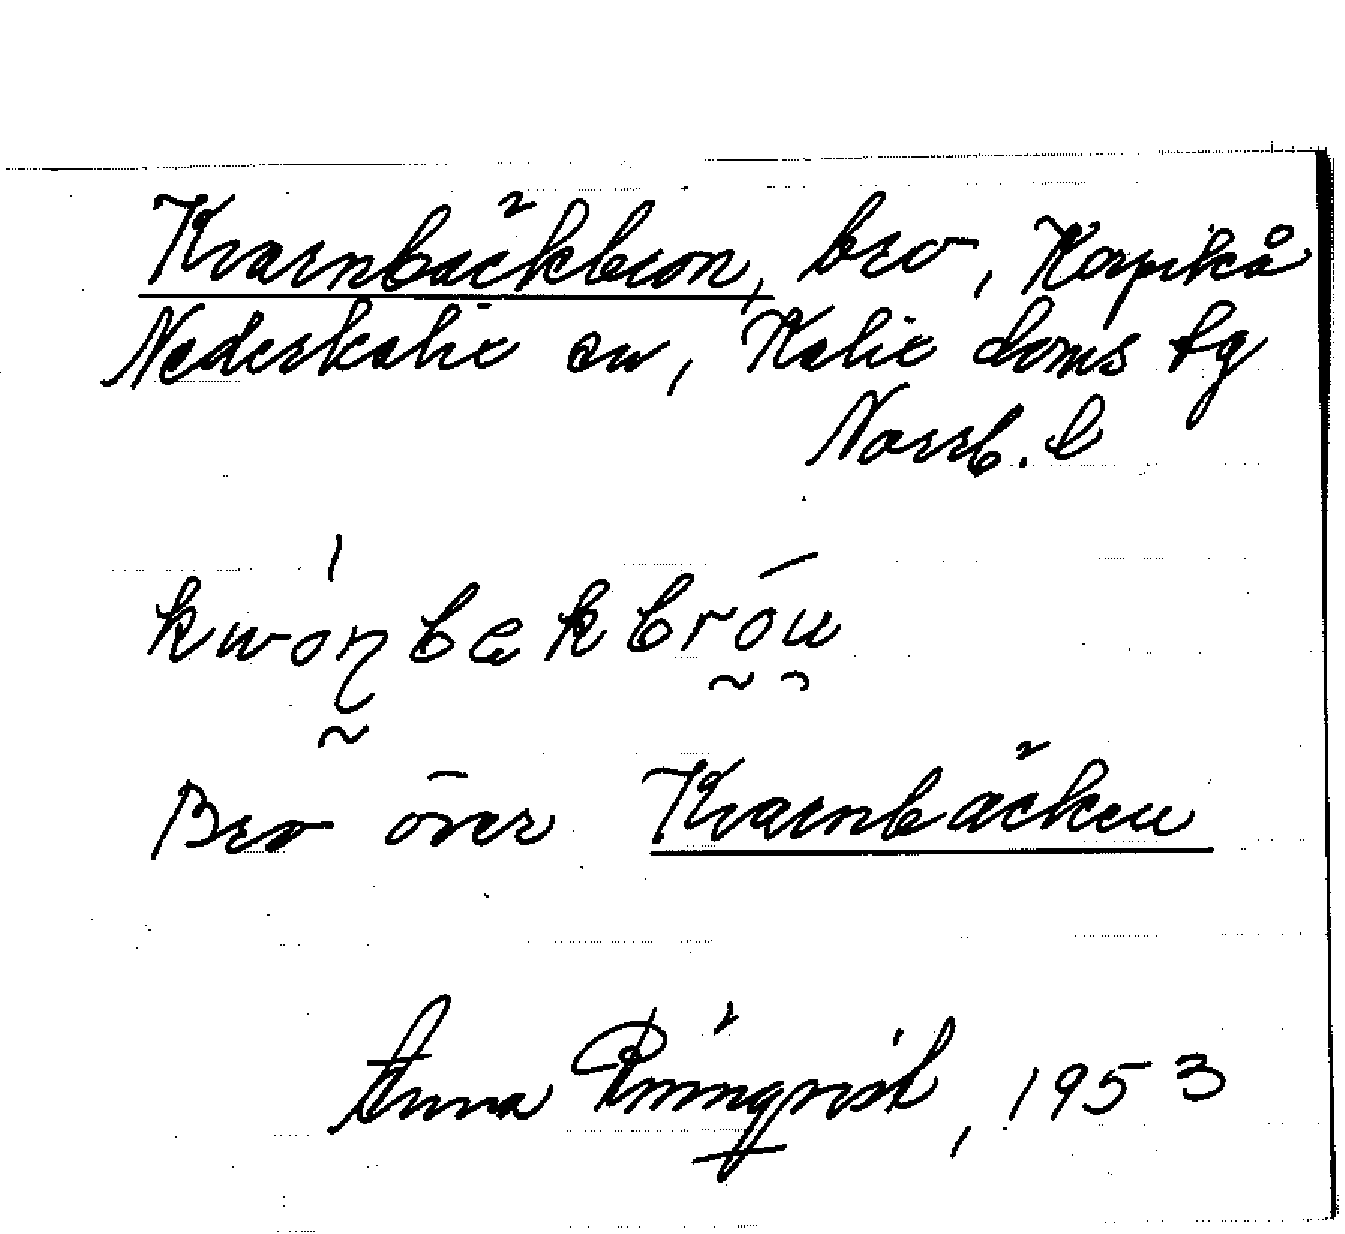 Kvarnbäckbron, bro, Korpikå
Nederkalix sn, Kalix doms tg
Norrb. l
kwȯɳbækbróu
Bro över Kvarnbäcken
Anna Rönnqvist, 1953